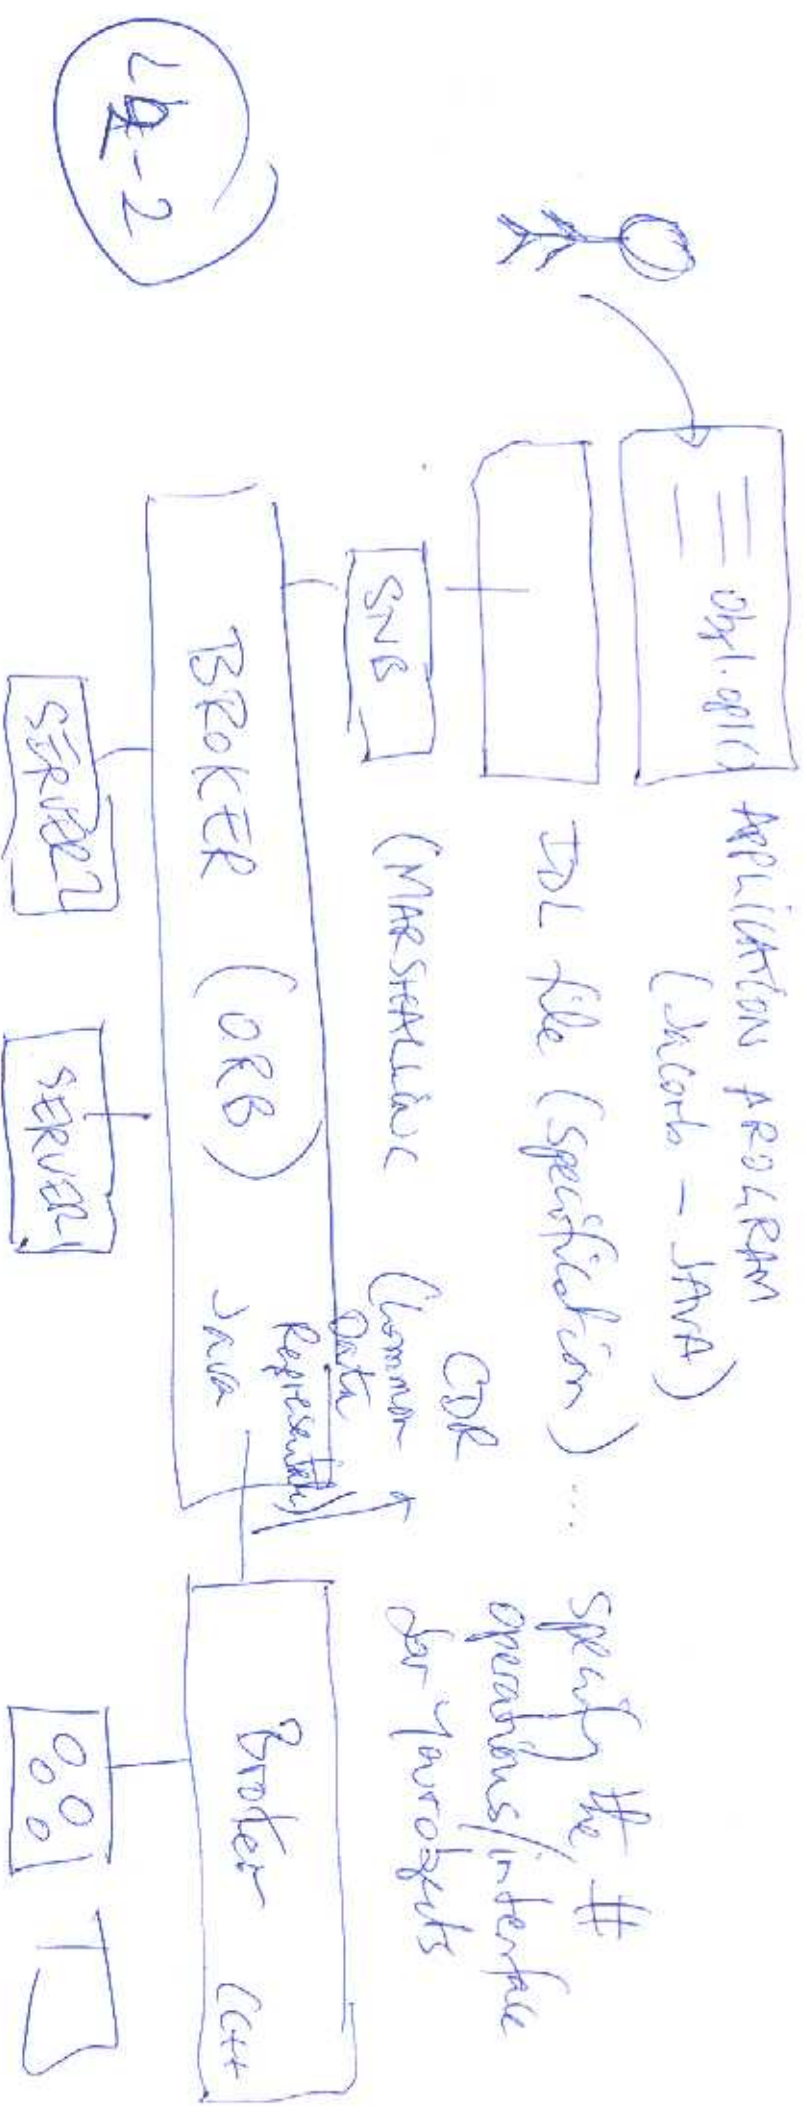 obj1.op1()
APPLICATION PROGRAM
(Jacorb - JAVA)
IDL file (specification) ...
specify the #
operations/interface
for your objects
(MARSHALLING
CDR
(Common
Data
Representation)
BROKER (ORB)
Java
Broker
C++
SERVER2
SERVER1